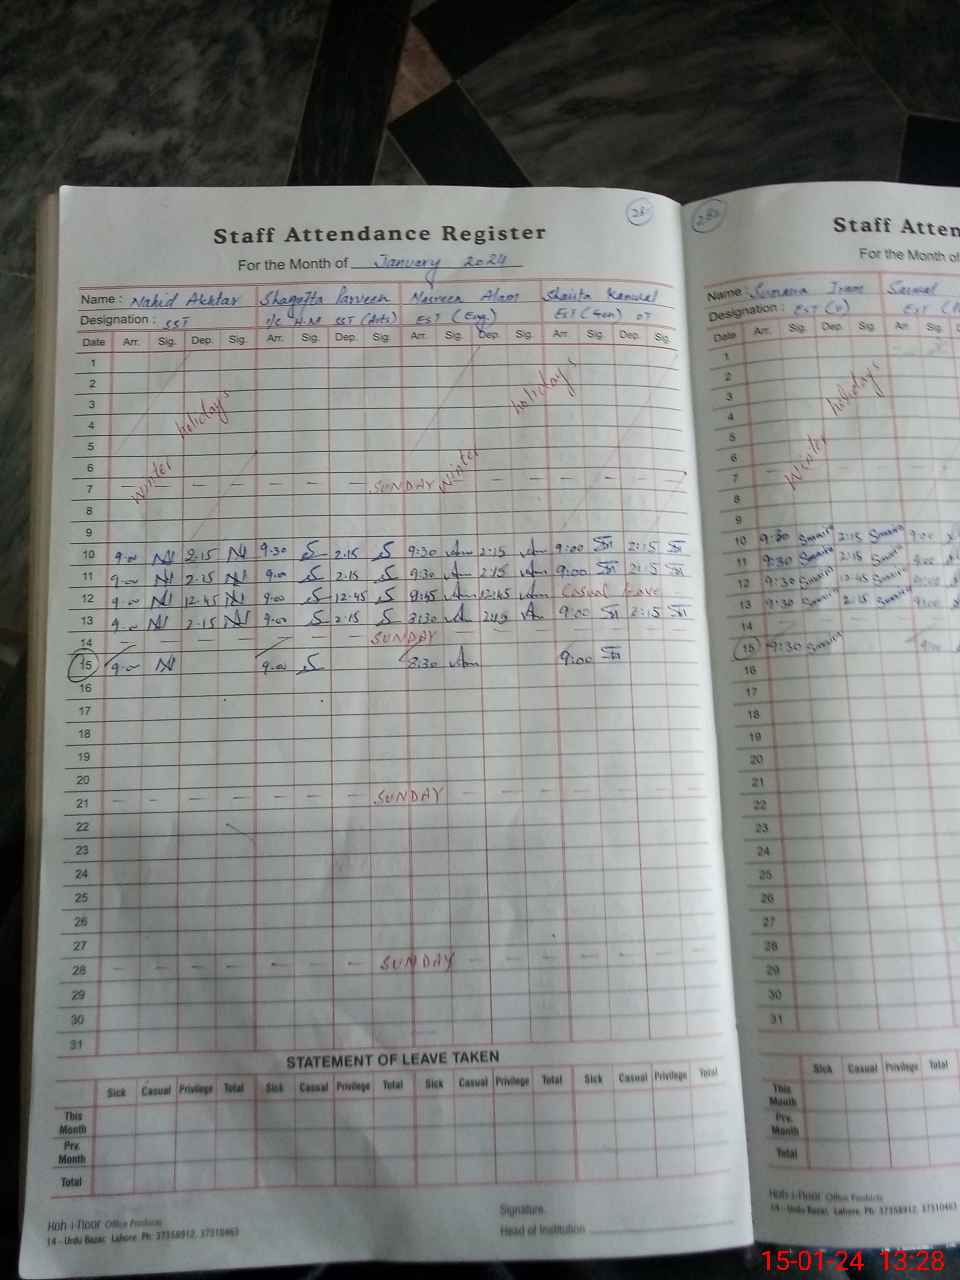 Staff Attendance Register
For the Month of January 2024
Name : Nahid Akhtar Shagufta Parveen Nasreen Alam Shaista Kanwal
Designation : SST I/C H.M SST (Arts) EST (Eng.) EST (Gen) OT
Date Arr. Sig. Dep. Sig. Arr. Sig. Dep. Sig. Arr. Sig. Dep. Sig. Arr. Sig. Dep. Sig.
1
2
3
4
5
6
7 SUNDAY
8
9
Winter holidays
Winter holidays
10 9:00 2:15 9:30 2:15 9:30 2:15 9:00 2:15
11 9:00 2:15 9:00 2:15 9:30 2:15 9:00 2:15
12 9:00 12:45 9:00 12:45 9:45 12:45 Casual leave
13 9:00 2:15 9:00 2:15 2:45 9:00 2:15
14 SUNDAY
15 9:00 9:00 8:30 9:00
16
17
18
19
20
21 SUNDAY
22
23
24
25
26
27
28 SUNDAY
29
30
31
STATEMENT OF LEAVE TAKEN
Sick Casual Privilege Total Sick Casual Privilege Total Sick Casual Privilege Total Sick Casual Privilege Total
This Month
Prv. Month
Total
Signature.
Head of Institution
Office Products
14 - Urdu Bazar, Lahore. Ph: 37358912, 37310463
Staff Atten
For the Month of
Name : Iram
Designation : EST
Date Arr. Sig. Dep. Sig. Arr. Sig. Dep.
1
2
3
4
5
6
7
8
9
Winter holidays
10 9:30 2:15 9:00
11 9:30 2:15 9:00
12 9:30 12:45 9:00
13 9:30 2:15 9:00
14
15 9:30 9:00
16
17
18
19
20
21
22
23
24
25
26
27
28
29
30
31
Sick Casual Privilege Total
This Month
Prv. Month
Total
Office Products
14 - Urdu Bazar, Lahore. Ph: 37358912, 37310463
15-01-24 13:28